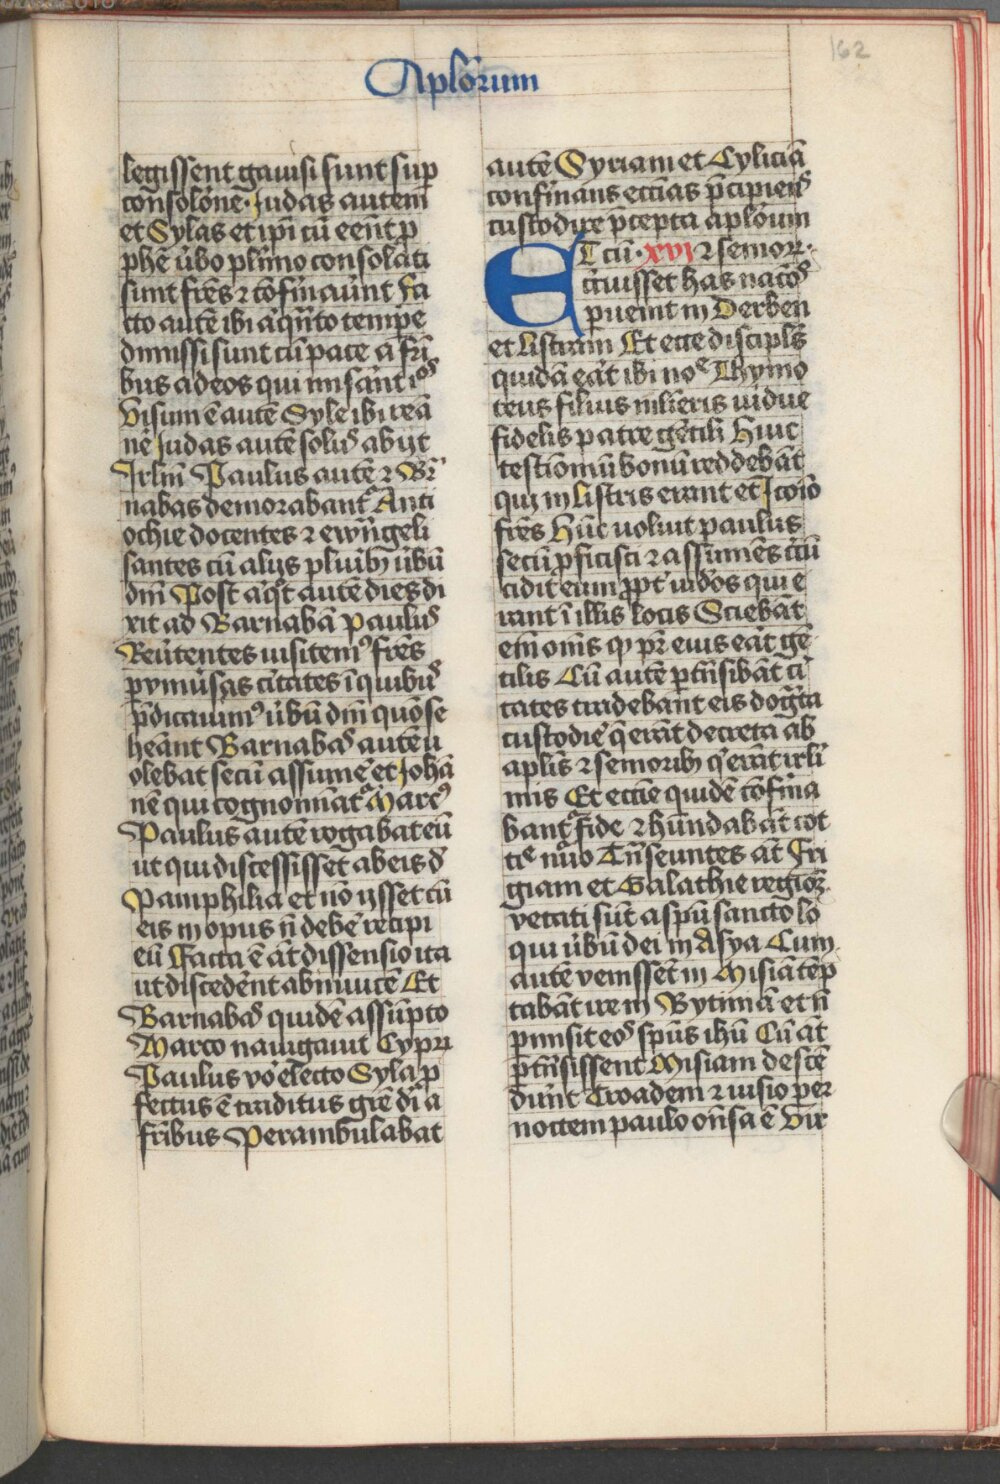 162
Aplōrum
legissent gauisi sunt suꝑ
consolōne. Judas autem
et Sylas et ipi cū eēnt ꝓ
phē ūbo plīmo consolati
sunt frēs ⁊ ꝯfirmaūnt Fa
cto autē ibi aliqn̄to tempe
dimissi sunt cū pace a frī
bus ad eos qui misāt ios
Visum ē autē Syle ibi reā
nē Judas autē solus abijt
Jrlm̄ Paulus autē ⁊ Br̄
nabas demorabant Anti
ochie docentes ⁊ ewn̄geli
santes cū alijs pluibꝫ ūbū
dn̄i Post aliqt autē dies di
xit ad Barnabā paulus
Reūtentes uisitemꝰ frēs
ꝑ vniūsas ciūtates ī quibus
p̄dicauimꝰ ūbū dn̄i quōse
heānt Barnabas autē u
olebat secū assumē et Johā
nē qui cognoīat Marcꝰ
Paulus autē rogabat eū
ut qui discessisset ab eis d
Pamphilia et nō ijsset cū
eis in opus n̄ debē recipi
eū Facta ē āt dissensio ita
ut discedent ab inuicē Et
Barnabas quidē assūpto
Marco nauigauit Cyprū
Paulus vō electo Syla ꝓ
fectus ē traditus grē dī a
frībus Perambulabat
autē Syriam et Cyliciā
confirmans eccīas p̄cipiens
custodire p̄cepta aplōum
ET cū .xvi ⁊ semor
cūisset has natōs
ꝑuenit in Derben
et Listram Et ecce discipls
quidā eāt ibi noē Thymo
teus filius mlieris uidue
fidelis patre gētili Huic
testiōnīū bonū reddebāt
qui in Listris erant et Jcoīo
frēs Hūc uoluit paulus
secū ꝓficisci ⁊ assumēs cīcū
cidit eum ꝓpt iudos qui e
rant ī illis locis Sciebāt
em̄ oms ꝙ pr̄ eius eāt gē
tilis Cū autē ꝑtn̄sibāt ci
tates tradebant eis dogīta
custodiē q̄ erāt decreta ab
aplīs ⁊ seniorībꝫ q̄ erāt irlī
mis Et eccīe quidē ꝯfirma
bant fide ⁊ hūndabāt cot
tie nūo Tn̄seuntes āt Fri
giam et Galathie regioꝫ
vetati sūt a spū sancto lo
qui ūbū dei in Asya Cum
autē venissēt in Misiā tēp
tabāt ire in Bytiniā et n̄
ꝑmisit eos spūs ihū Cū āt
ꝑtn̄sissent Misiam descē
dūnt Troadem ⁊ uisio per
noctem paulo onsa ē Vir